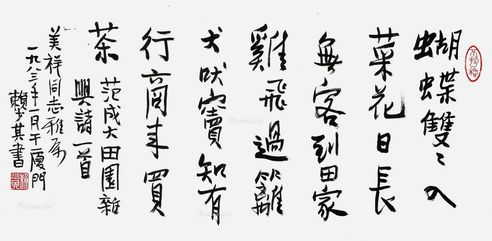 蝴蝶雙〻入
菜花日長
無客到田家
雞飛過籬
犬吠竇知有
行商来買
茶 范成大田園雜
興詩一首
美祥同志雅屬
一九八三年一月于廈門
賴少其書